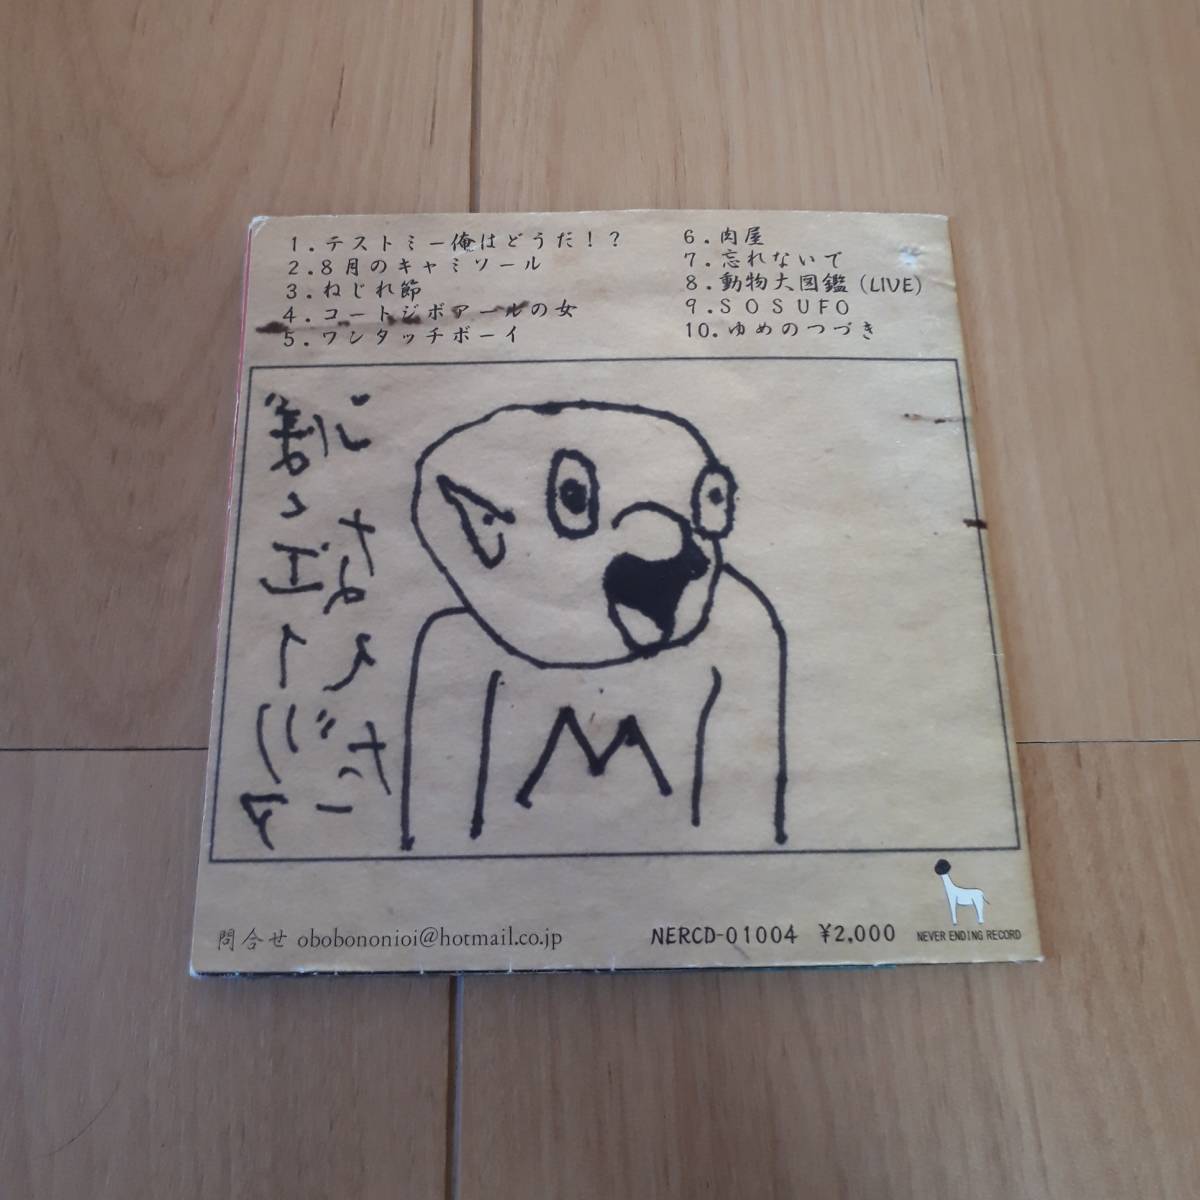 1.テストミー俺はどうだ!?
2.8月のキャミソール
3.ねじれ節
4.コートジボアールの女
5.ワンタッチボーイ
6.肉屋
7.忘れないで
8.動物大図鑑(LIVE)
9.SOSUFO
10.ゆめのつづき
M
問合せ obobononioi@hotmail.co.jp
NERCD-01004 ¥2,000
NEVER ENDING RECORD